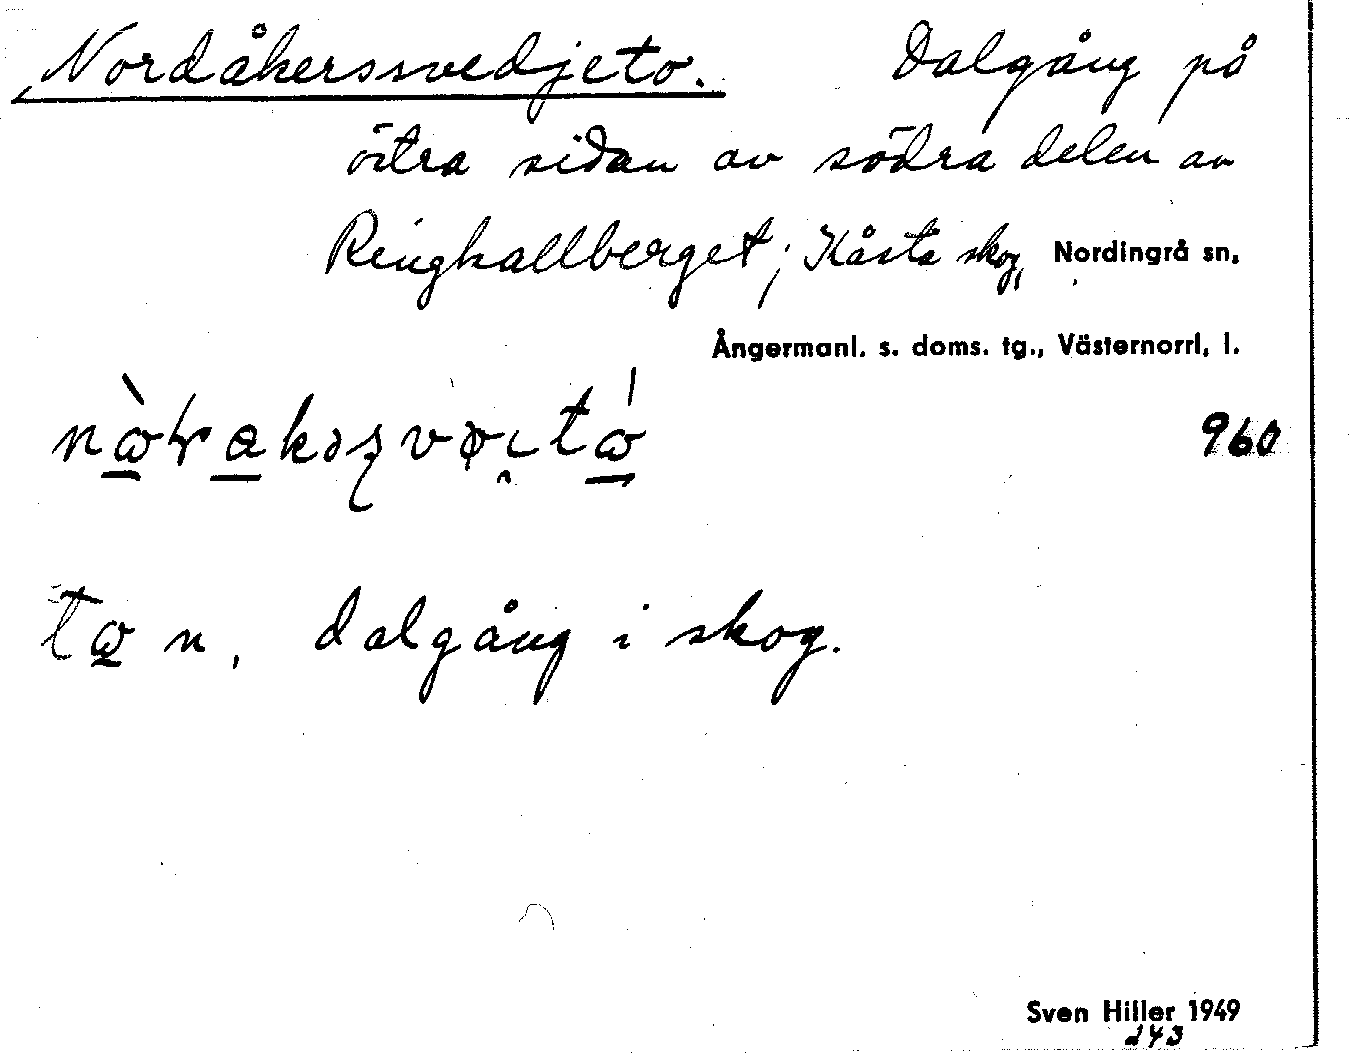 Nordåkerssvedjeto. Dalgång på
östra sidan av södra delen av
Ringkallberget; Kåsta skog, Nordingrå sn,
Ångermanl. s. doms. tg., Västernorrl, l.
960
n, dalgång i skog.
Sven Hiller 1949